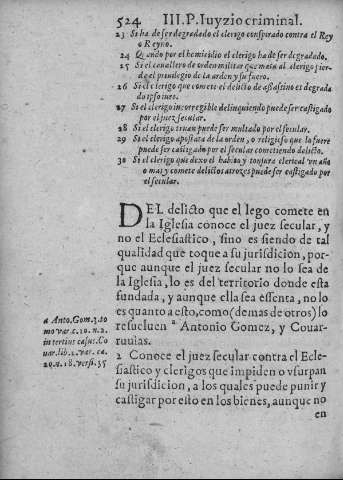 524 III.P. Iuyzio criminal.
23 Si ha de ser degradado el clerigo conspirado contra el Rey
o Reyno.
24 Quando por el homicidio el clerigo ha de ser degradado.
25 Si el cauallero de orden militar que mata al clerigo pier-
de el priuilegio de la orden y su fuero.
26 Si el clerigo que comete el delicto de assassino es degrada
do ipso iure.
27 Si el clerigo incorregible delinquiendo puede ser castigado
por el juez secular.
28 Si el clerigo truan puede ser multado por el secular.
29 Si el clerigo apostata de la orden, o religioso que lo fuere
puede ser castigado por el secular cometiendo delicto.
30 Si el clerigo que dexo el habito y tonsura clerical vn año
o mas y comete delictos atrozes puede ser castigado por
el secular.
DEL delicto que el lego comete en
la Iglesia conoce el juez secular, y
no el Eclesiastico, sino es siendo de tal
qualidad que toque a su jurisdicion, por-
que aunque el juez secular no lo sea de
la Iglesia, lo es del territorio donde esta
fundada, y aunque ella sea essenta, no lo
es quanto a esto, como (demas de otros) lo
resueluen a Antonio Gomez, y Couar-
ruuias.
a Anto. Gom. 3. to
mo var. c. 10. n. 2.
in tertius casus. Co
uar. lib. 2. var. ca.
20. n. 18. versi. 55
2 Conoce el juez secular contra el Ecle-
siastico y clerigos que impiden o vsurpan
su jurisdicion, a los quales puede punir y
castigar por esto en los bienes, aunque no
en